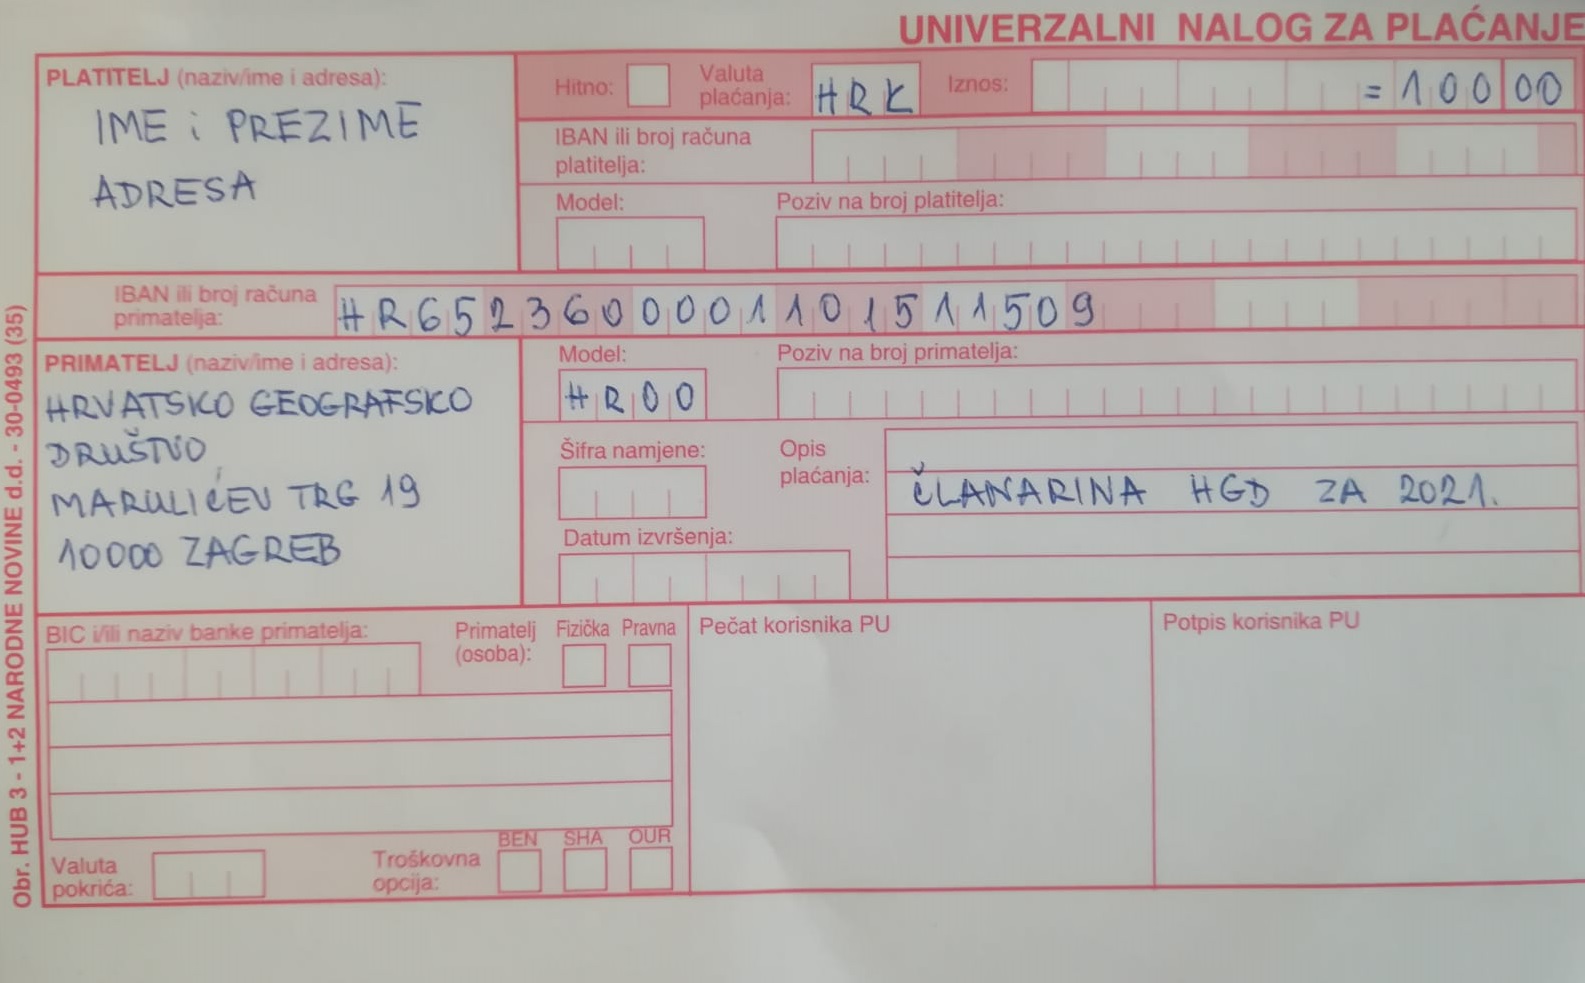 UNIVERZALNI NALOG ZA PLAĆANJE
PLATITELJ (naziv/ime i adresa):
IME i PREZIME
ADRESA
Hitno:
Valuta
plaćanja:
HRK
Iznos:
=10000
IBAN ili broj računa
platitelja:
Model:
Poziv na broj platitelja:
IBAN ili broj računa
primatelja:
HR6523600001101511509
PRIMATELJ (naziv/ime i adresa):
HRVATSKO GEOGRAFSKO
DRUŠTVO
MARULIĆEV TRG 19
10000 ZAGREB
Model:
HR00
Poziv na broj primatelja:
Šifra namjene:
Opis
plaćanja:
ČLANARINA HGD ZA 2021.
Datum izvršenja:
BIC i/ili naziv banke primatelja:
Primatelj
(osoba):
Fizička
Pravna
Pečat korisnika PU
Potpis korisnika PU
Valuta
pokrića:
Troškovna
opcija:
BEN
SHA
OUR
Obr. HUB 3 - 1+2 NARODNE NOVINE d.d. - 30-0493 (35)